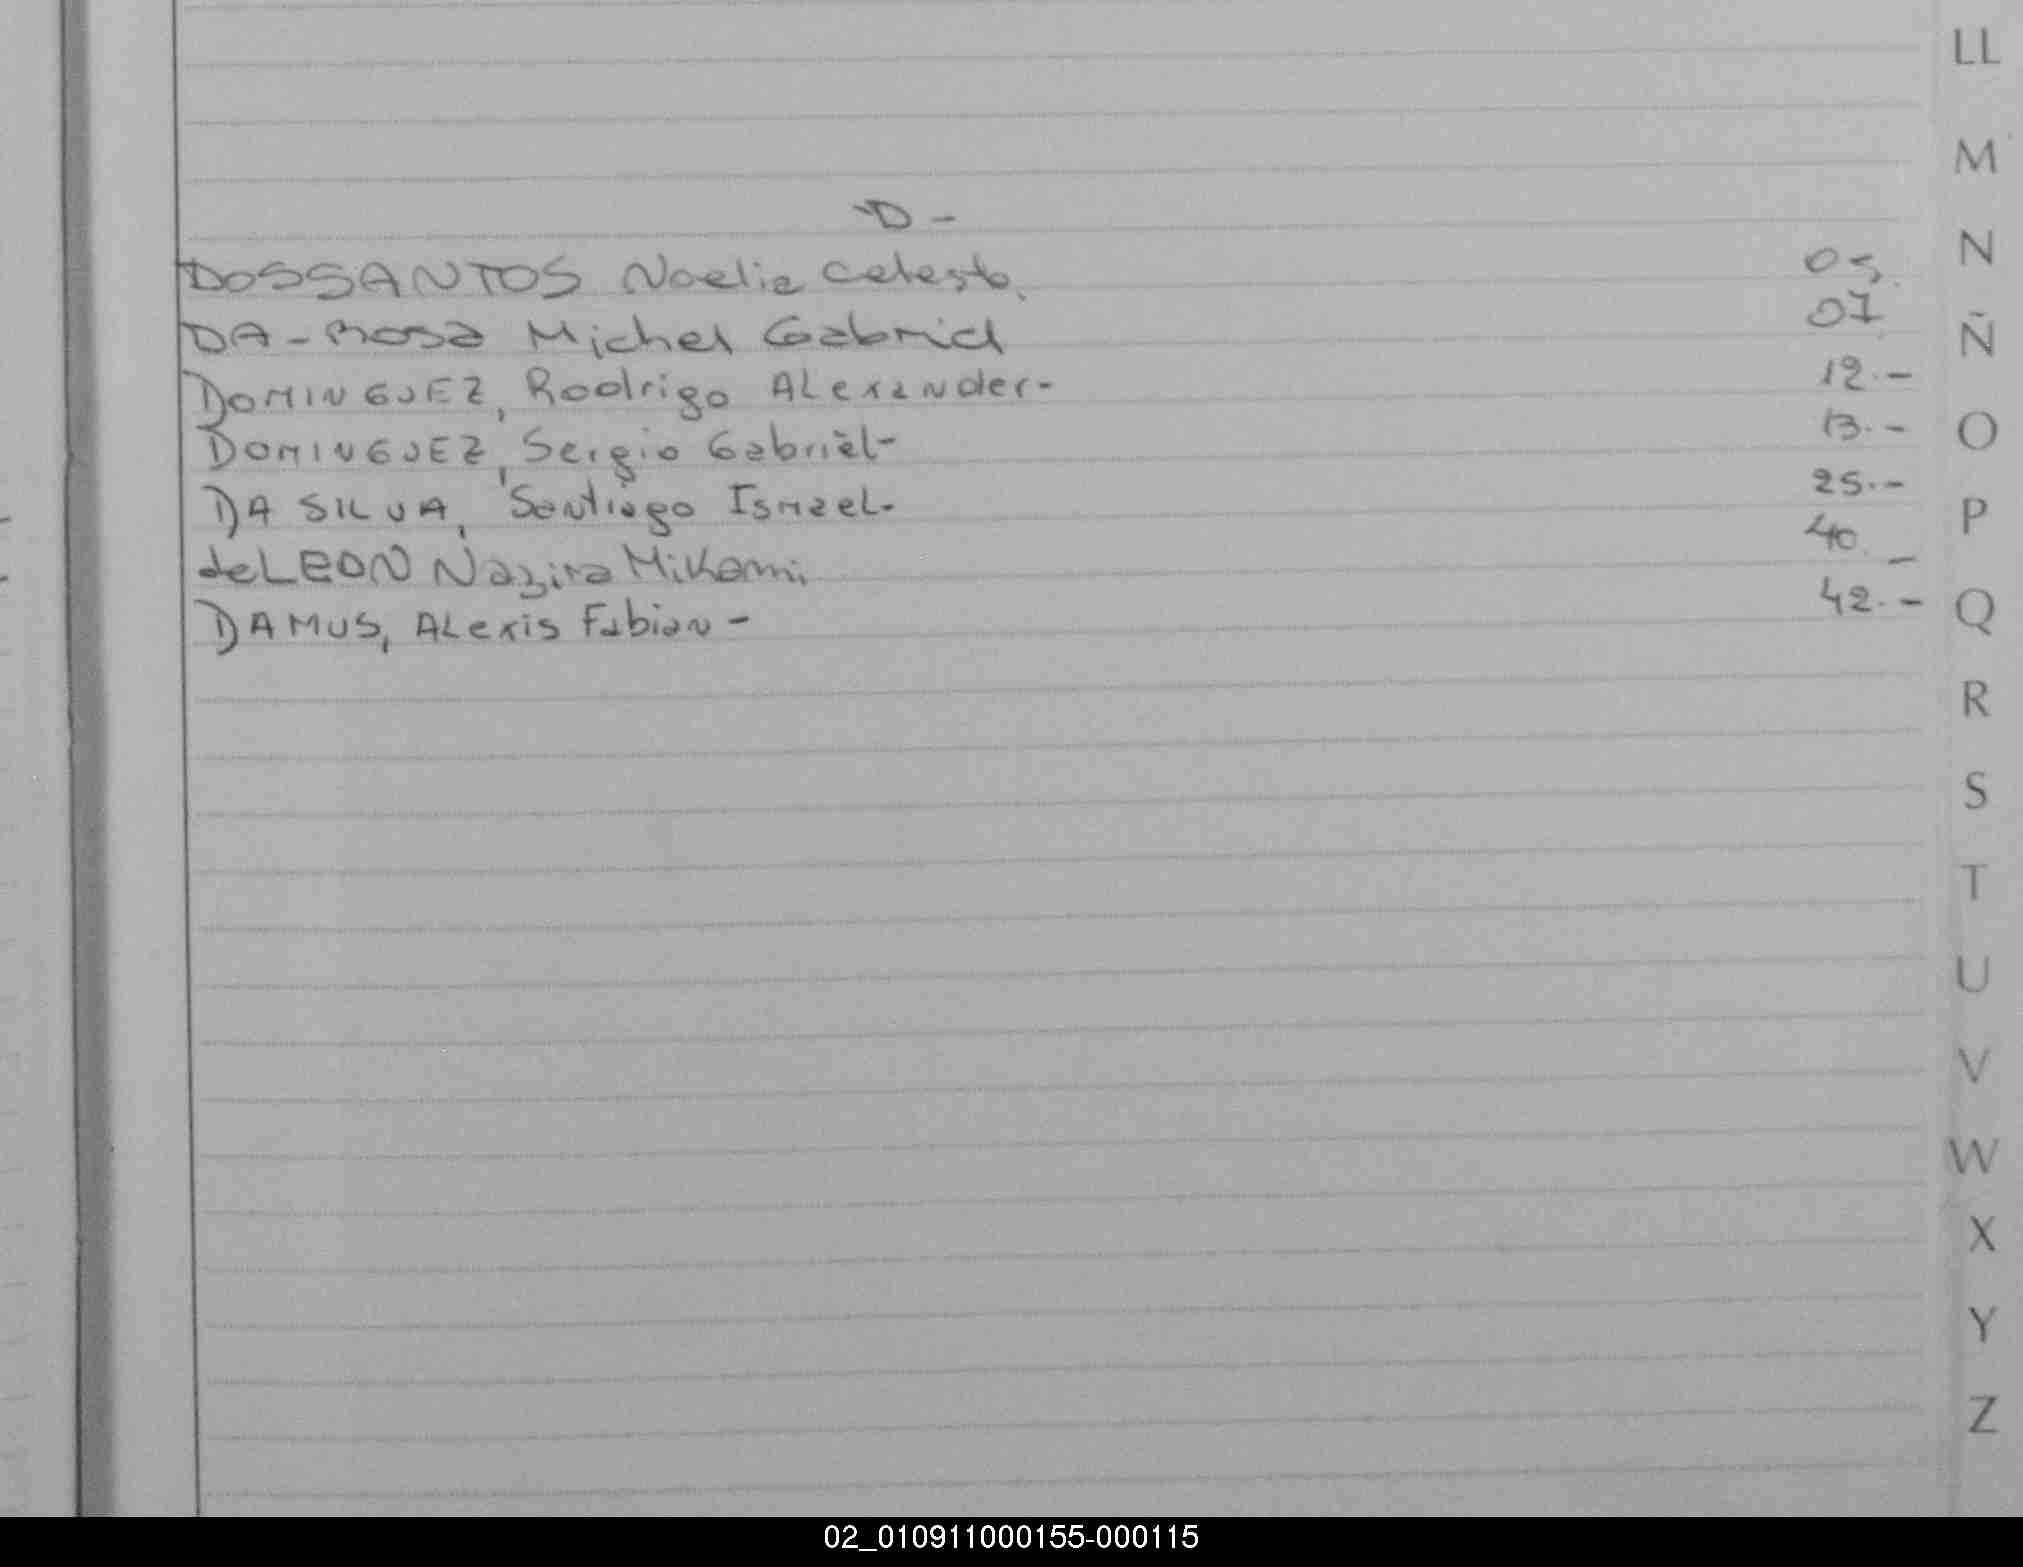 LL
M
-D-
N
DOSSANTOS Noelia Celeste. 05.
DA-Rosa Michel Gabriel 07
Ñ
DOMINGUEZ, Rodrigo ALexander- 12.-
DOMINGUEZ, Sergio Gabriel- 13.-
O
DA SILVA, Santiago Ismael- 25.-
P
deLEON Nazira Mikami 40. -
DAMUS, ALexis Fabian - 42.-
Q
R
S
T
U
V
W
X
Y
Z
02_010911000155-000115